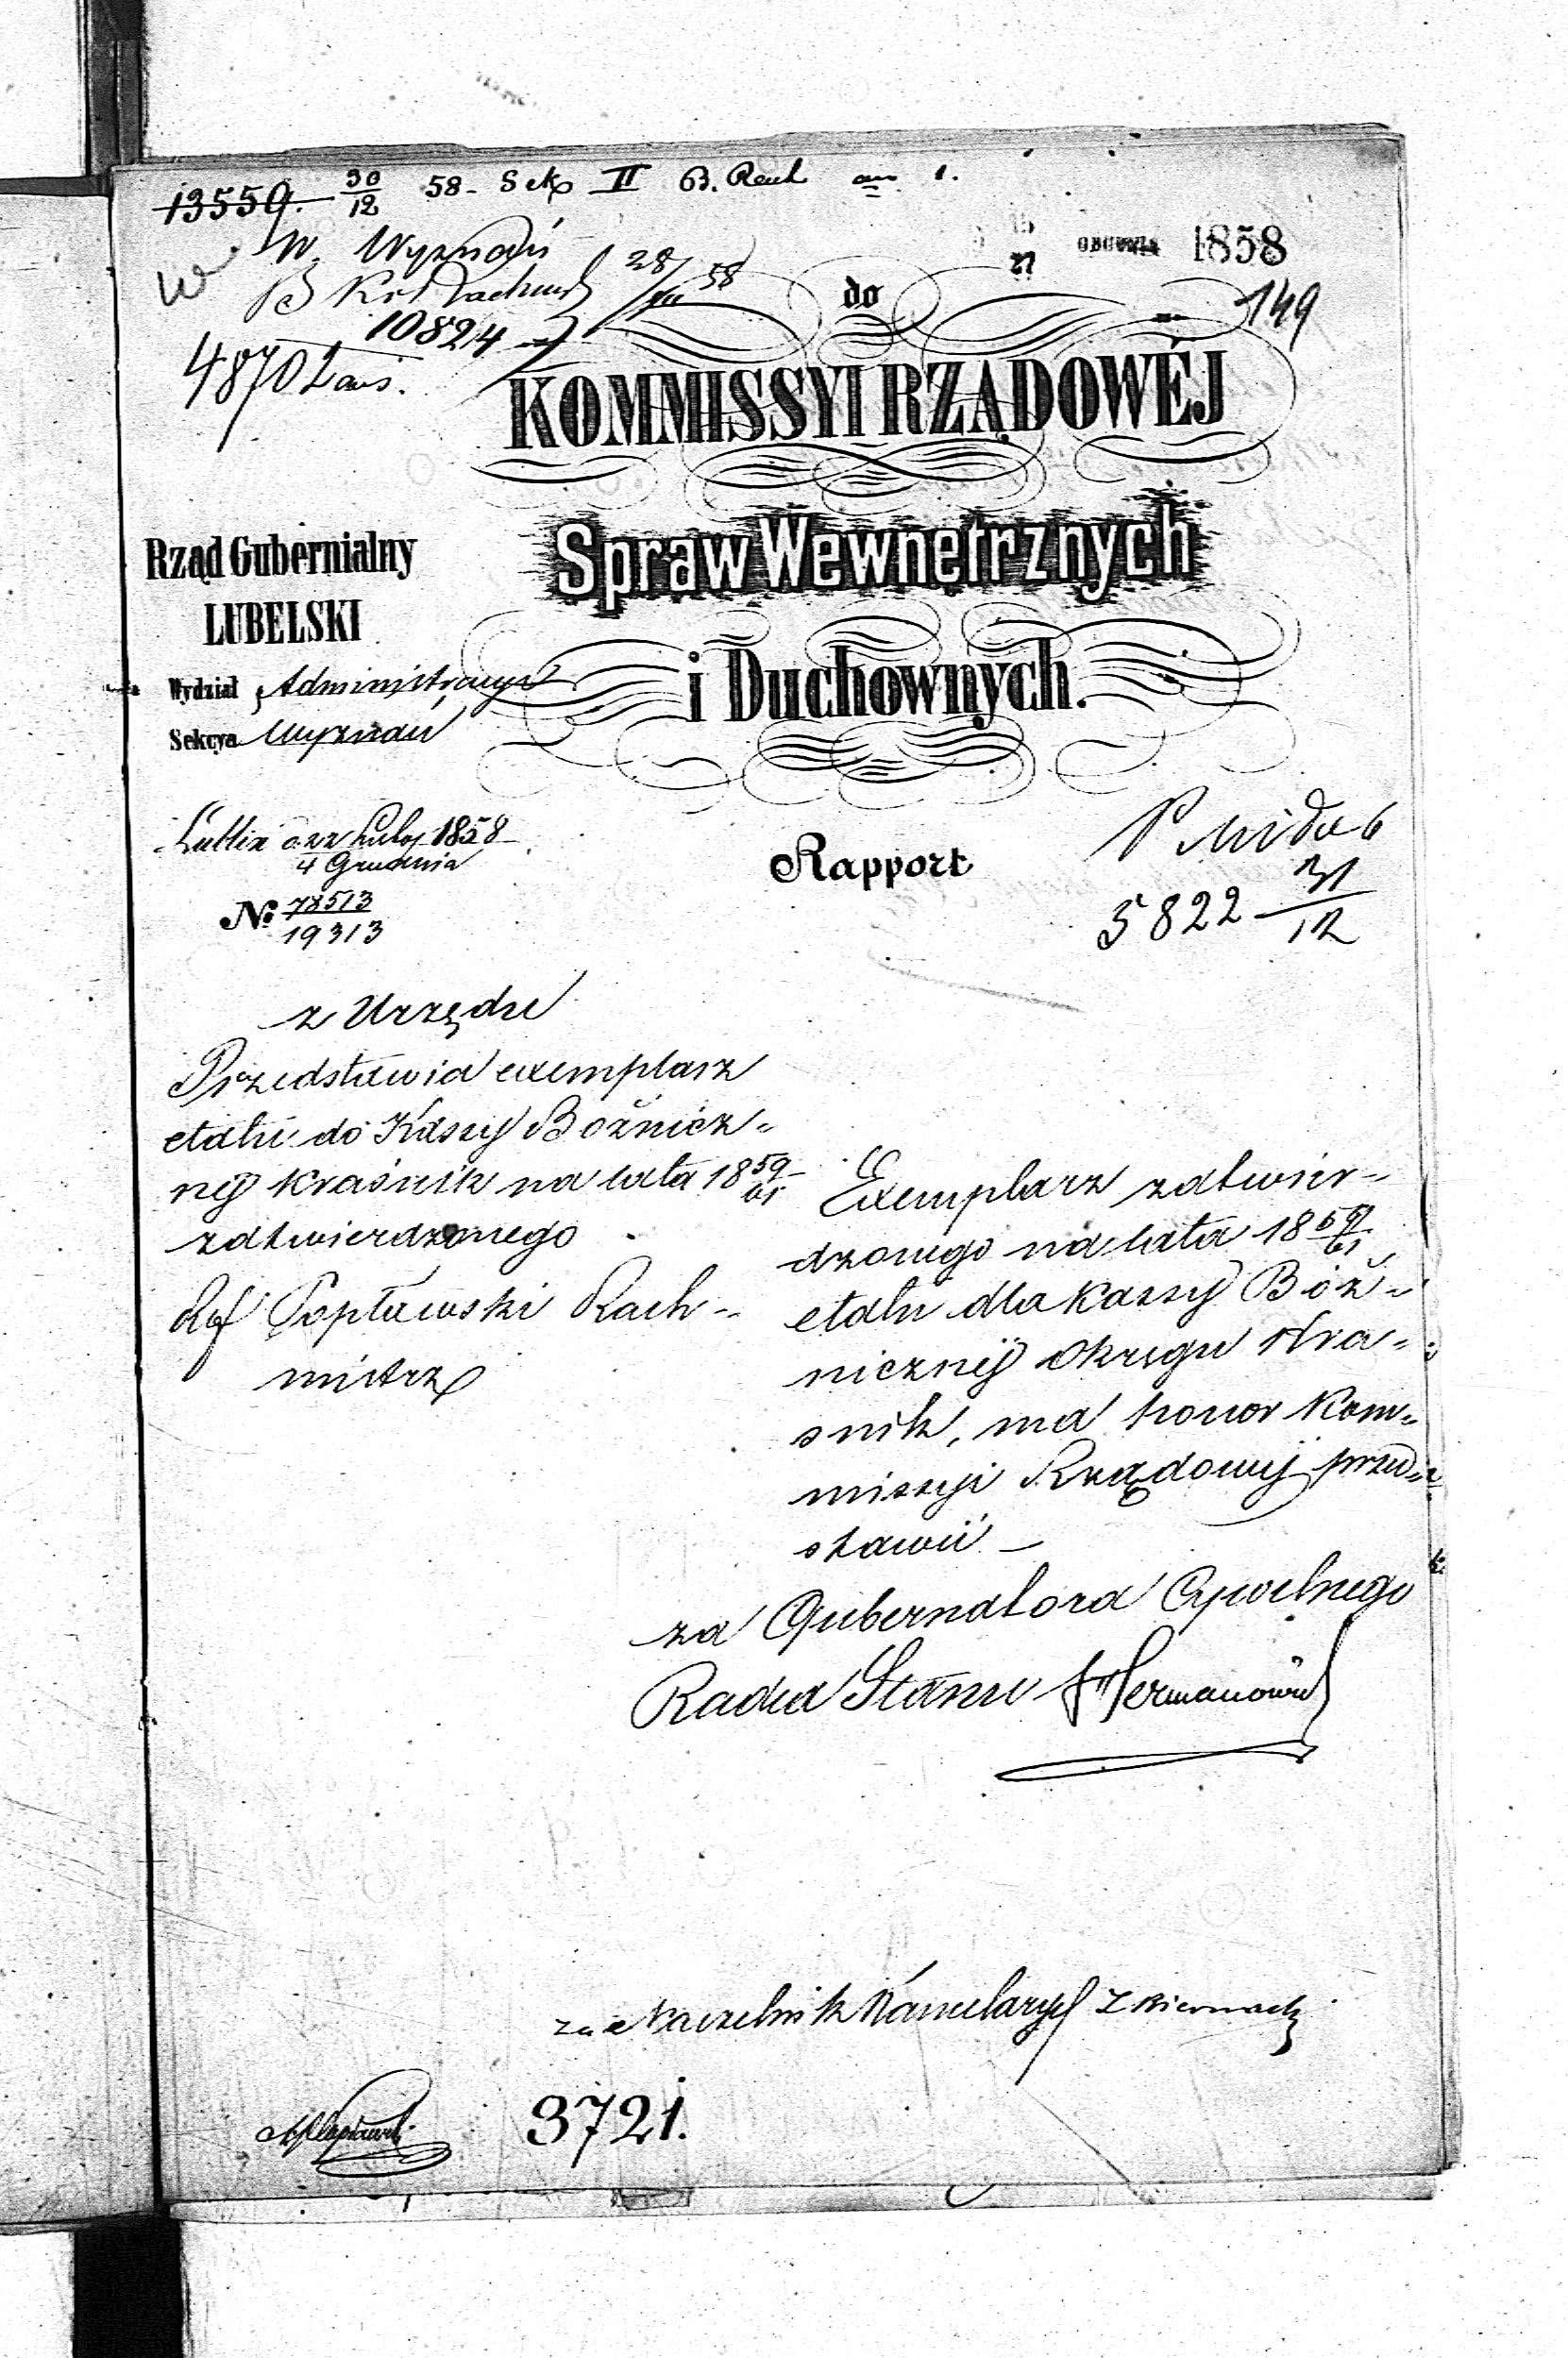 13559. 30/12 58 - Sek II B. Rach
W. Wyznań
28/XII 58
10824
4870
27 GRUDNIA 1858
149
do
KOMMISSYI RZĄDOWÉJ
Spraw Wewnetrznych
i Duchownych.
Rząd Gubernialny
LUBELSKI
Wydział Administracyi
Sekcya Wyznań
Lublin d. 22 Listop 1858
4 Grudnia
№ 78513
19313
Rapport
5822 31/12
z Urzędu
Przedstawia exemplarz
etatu do Kassy Bóżnicz-
nej Kraśnik na lata 18 59/61
zatwierdzonego
Ref Popławski Rach-
mistrz
Exemplarz zatwier-
dzonego na lata 18 59/61
etatu dla Kassy Boż-
nicznéj Okręgu Kra-
snik, ma honor Kom-
missyi Rządowéj przed-
stawić
za Gubernatora Cywilnego
Radca Stanu Hermanowicz
za Naczelnik Kancelaryi Biernacki
3721.